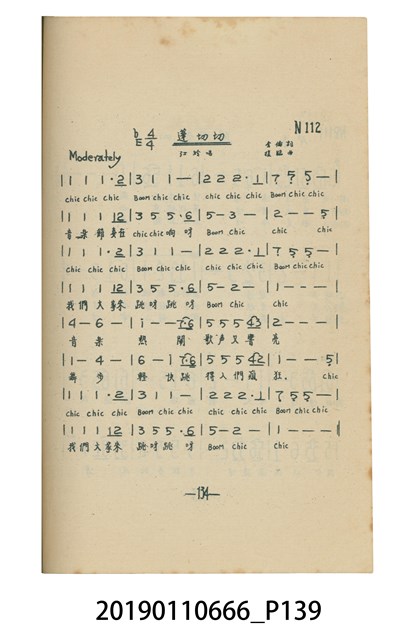 N 112
bE 4/4 蓬切切
Moderately 江玲唱
|1 1 1 ·2|3 1 1 —|2 2 2 ·1|7 5 5 —|
chic chic chic chic Boom chic chic chic chic chic chic Boom chic chic
|1 1 1 12|3 5 5 ·6|5 — 3 —|2 — — 5|
音樂 chic chic 响呀 Boom chic chic chic
|1 1 1 ·2|3 1 1 —|2 2 2 ·1|7 5 5 —|
chic chic chic chic Boom chic chic chic chic chic chic Boom chic chic
|1 1 1 12|3 5 5 ·6|5 — 2 —|1 — — —|
我們大家來 跳呀跳呀 Boom chic chic
|4 — 6 —|i — — 7·6|5 5 5 43|2 — — —|
音樂 熱鬧 歌声又響亮
|1 — 4 —|6 — 1 76|5 5 5 43|1 — — 5|
舞步 輕快跳 得人們瘋狂。 chic
|1 1 1 ·2|3 1 1 —|2 2 2 ·1|7 5 5 —|
chic chic chic chic Boom chic chic chic chic chic chic Boom chic chic
|1 1 1 12|3 5 5 ·6|5 — 2 —|1 — — —|
我們大家來 跳呀跳呀 Boom chic chic
—134—
20190110666_P139